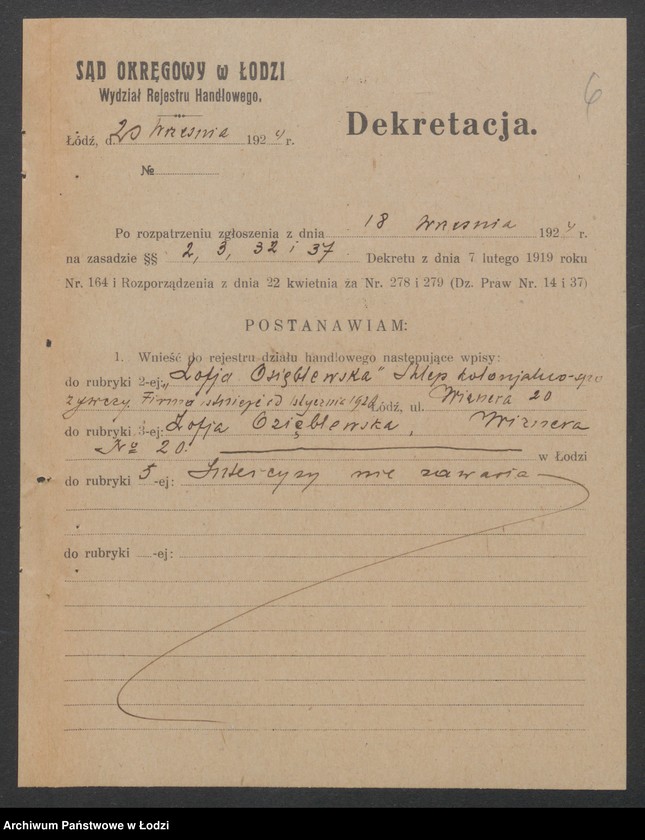 SĄD OKRĘGOWY w ŁODZI
Wydział Rejestru Handlowego.
6
Łódź, d. 20 Września 1924 r.
Dekretacja.
№
Po rozpatrzeniu zgłoszenia z dnia 18 Września 1924 r.
na zasadzie §§ 2, 3, 32 i 37 Dekretu z dnia 7 lutego 1919 roku
Nr. 164 i Rozporządzenia z dnia 22 kwietnia za Nr. 278 i 279 (Dz. Praw Nr. 14 i 37)
POSTANAWIAM:
1. Wnieść do rejestru działu handlowego następujące wpisy:
do rubryki 2-ej: „Zofja Oziębłewska" Sklep kolonjalno-spo
żywczy. Firma istnieje od stycznia 1924 Łódź, ul. Wiznera 20
do rubryki 3-ej: Zofja Oziębłewska, Wiznera
№ 20. w Łodzi
do rubryki 5-ej: Intercyzy nie zawarła
do rubryki -ej:
Archiwum Państwowe w Łodzi